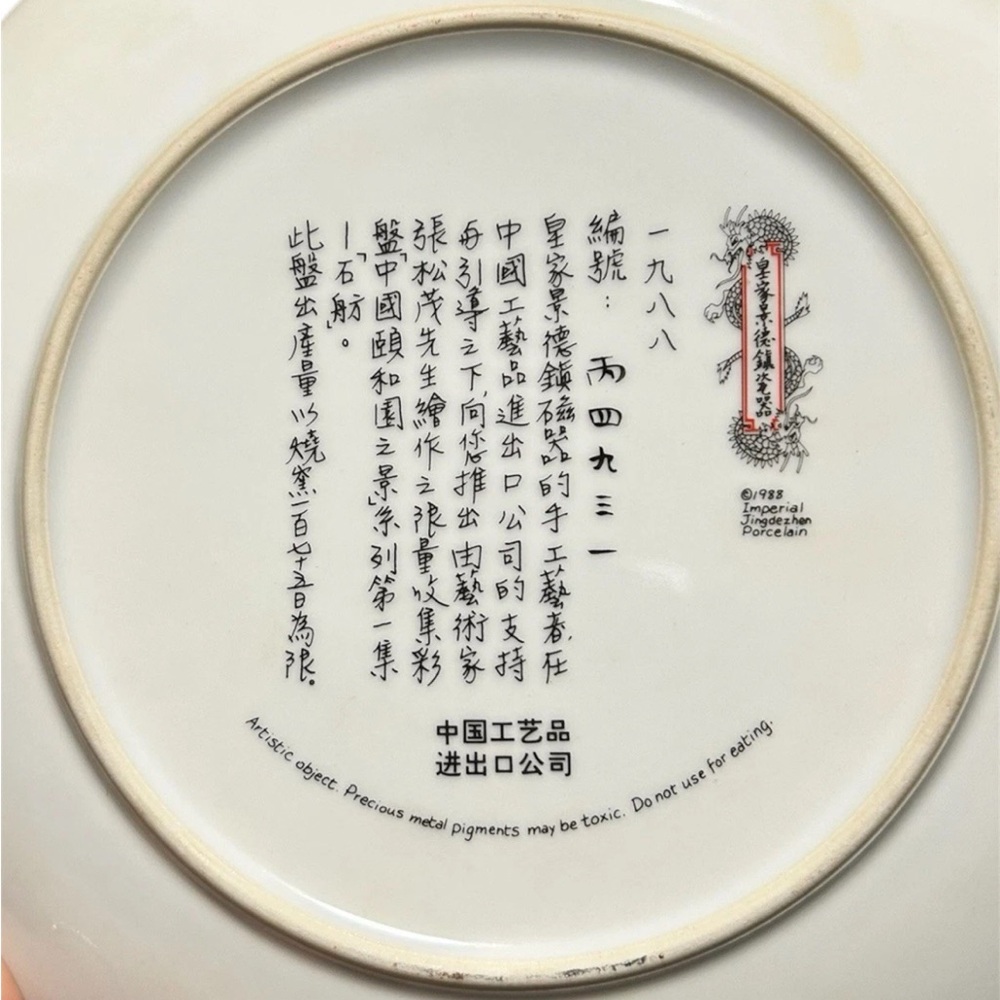 皇家景德鎮瓷器
©1988
Imperial
Jingdezhen
Porcelain
一九八八
編號：丙四九三一
皇家景德鎮磁器的手工藝者，在
中國工藝品進出口公司的支持
与引導之下，向您推出由藝術家
張松茂先生繪作之限量收集彩
盤「中國頤和園之景」系列第一集
—「石舫」。
此盤出產量以燒窯一百七十五日為限。
中国工艺品
进出口公司
Artistic object. Precious metal pigments may be toxic. Do not use for eating.